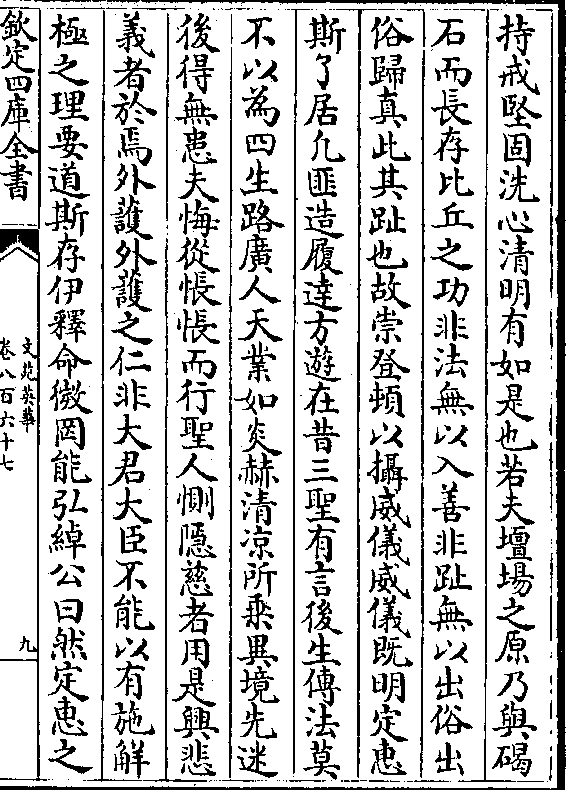 持戒堅固洗心清明有如是也若夫壇場之原乃與碣
石而長存比丘之功非法無以入善非趾無以出俗出
俗歸真此其趾也故崇登頓以攝威儀威儀既明定惠
斯了居凢匪造履達方遊在昔三聖有言後生傳法莫
不以為四生路廣人天業如炎赫清凉所乗異境先迷
後得無患夫悔從悵悵而行聖人惻隠慈者用是興悲
義者於焉外護外護之仁非大君大臣不能以有施觧
極之理要道斯存伊釋命徽罔能弘綽公曰然定惠之
欽定四庫全書
文苑英華
卷八百六十七
九